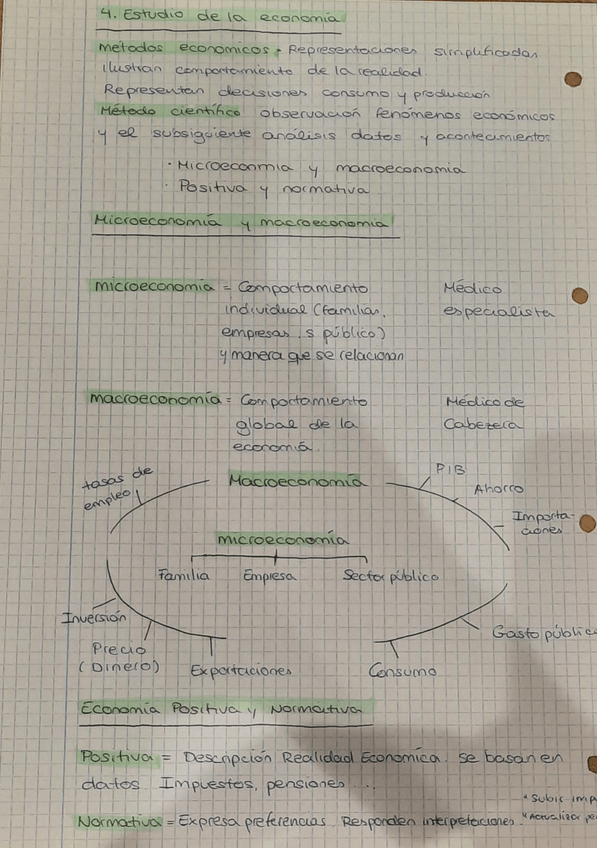 4. Estudio de la economía
métodos económicos • Representaciones simplificadas
ilustran comportamiento de la realidad.
Representan decisiones consumo y producción
Método científico observación fenómenos económicos
y el subsiguiente análisis datos y acontecimientos
· Microeconomia y macroeconomia
· Positiva y normativa
Microeconomía y macroeconomia
microeconomia = Comportamiento
individual (familias,
empresas, s público)
y manera que se relacionan
Médico
especialista
macroeconomía = Comportamiento
global de la
economía.
Médico de
Cabezera
tasas de
empleo
Macroeconomía
PIB
Ahorro
Importa-
ciones
microeconomía
Familia Empresa Sector público
Inversión
Precio
(Dinero)
Exportaciones
Consumo
Gasto público
Economía Positiva y Normativa
Positiva = Descripción Realidad Económica. se basan en
datos Impuestos, pensiones ...
"Subir imp
Normativa = Expresa preferencias. Responden interpretaciones.
"Actualizar pe